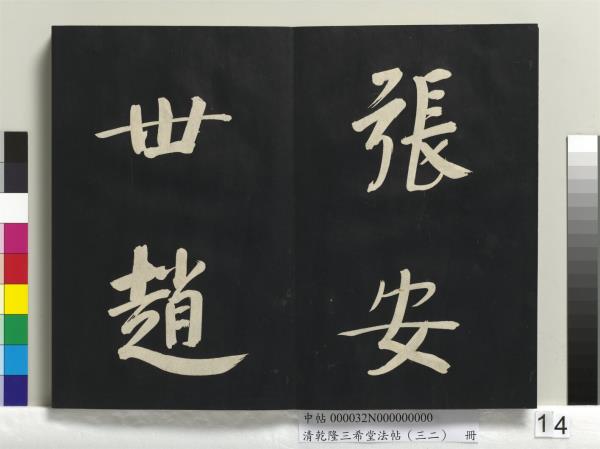 張安
世趙
中帖 000032N000000000
清乾隆三希堂法帖（三二） 冊
14